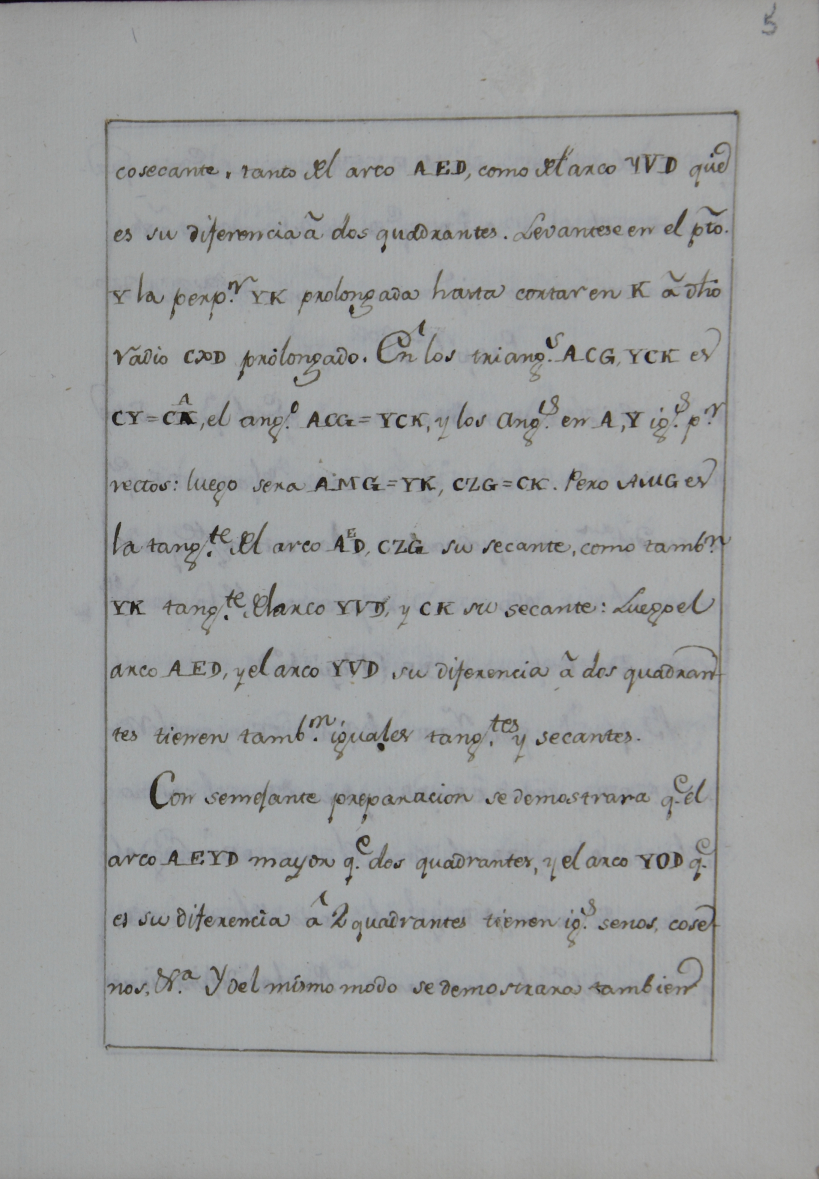 5
cosecante, tanto del arco AED, como del arco YVD que
es su diferencia â dos quadrantes. Levantese en el pto.
Y la perp.r YK prolongada hasta cortar en K â dho
radio CXD prolongado. En los triang.s ACG, YCK es
CY=CA, el ang.o ACG=YCK, y los Ang.s en A, Y ig.s p.r
rectos: luego sera AMG=YK, CZG=CK. Pero AMG es
la tang.te del arco AED, CZG su secante, como tamb.n
YK tang.te del arco YVD, y CK su secante: Luego el
arco AED, y el arco YVD su diferencia â dos quadran-
tes tienen tamb.n iguales tang.tes y secantes.
Con semejante preparacion se demostrara q.e el
arco AEYD mayor q.e dos quadrantes, y el arco YOD q.e
es su diferencia â 2 quadrantes tienen ig.s senos, cose-
nos, &.a Y del mismo modo se demostrara tambien